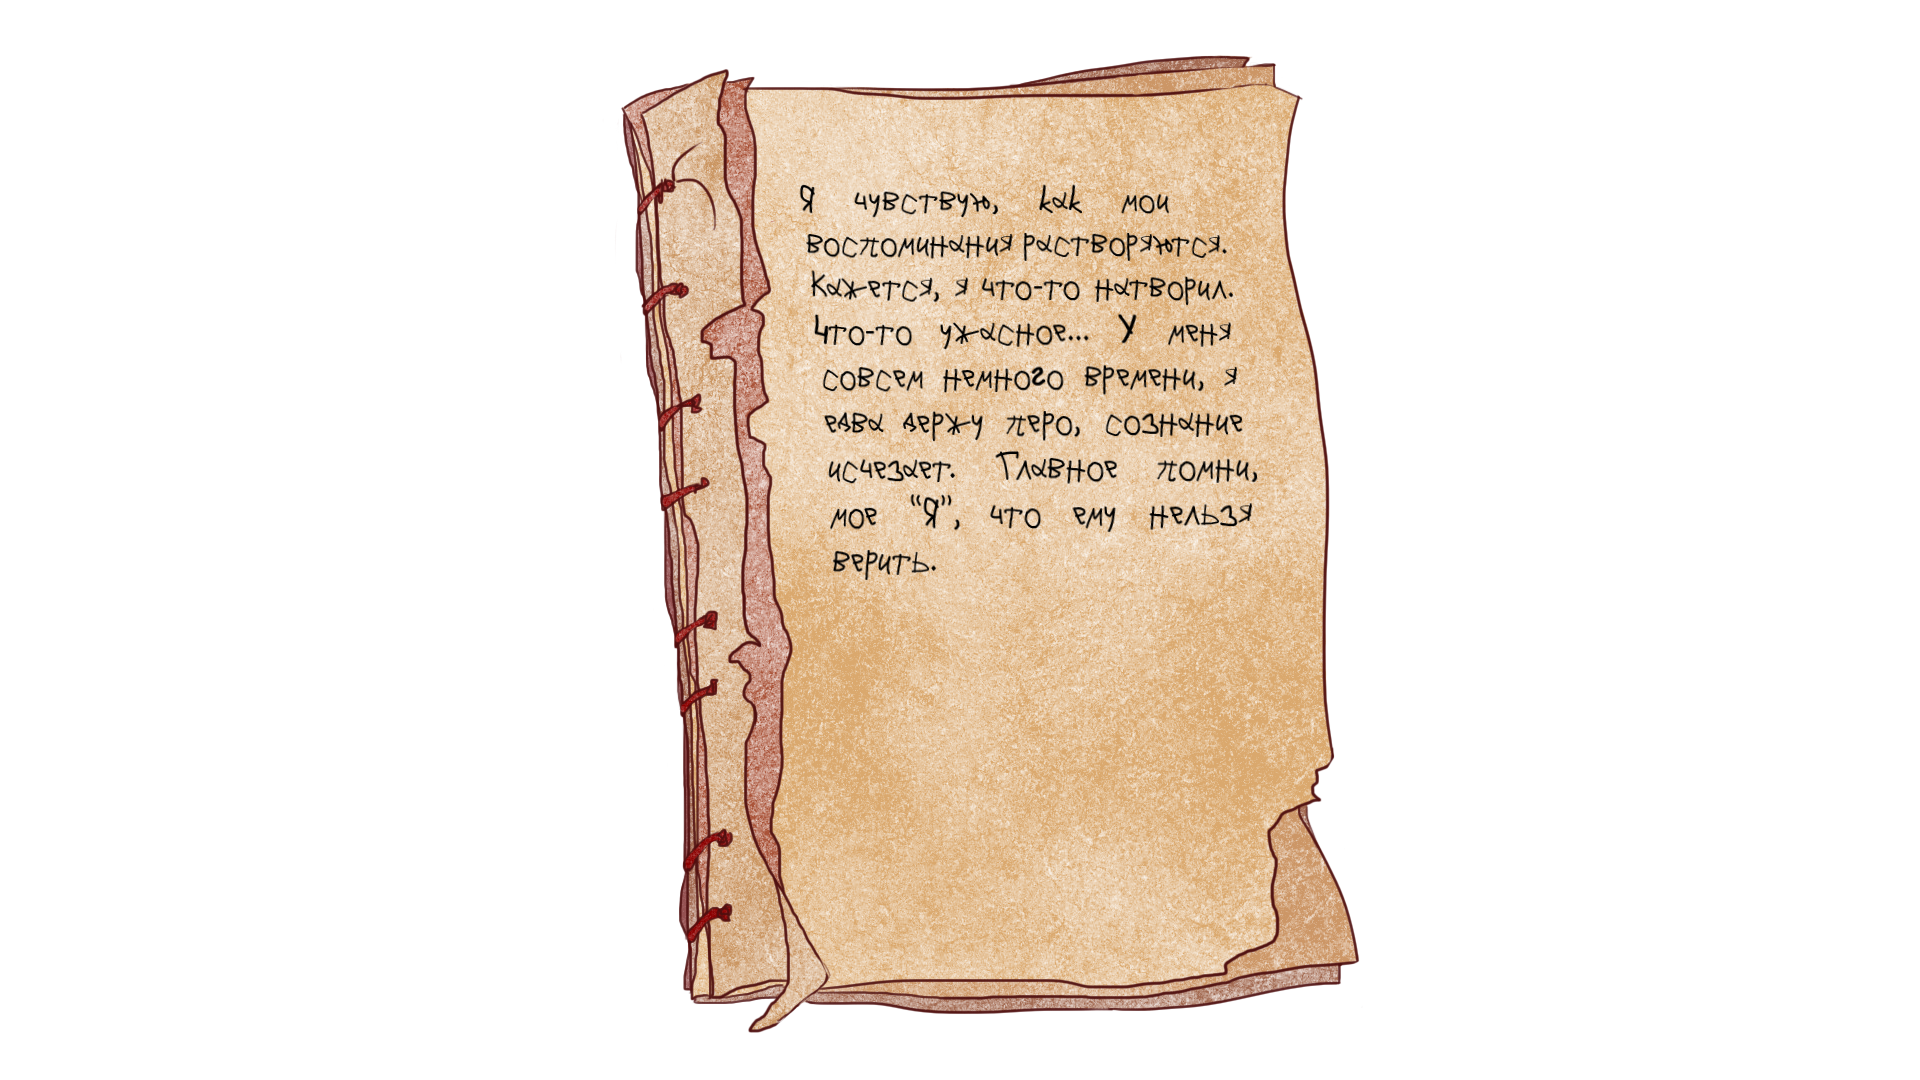 Я чувствую, как мои
воспоминания растворяются.
Кажется, я что-то натворил.
Что-то ужасное... У меня
совсем немного времени, я
едва держу перо, сознание
исчезает. Главное помни,
мое “Я”, что ему нельзя
верить.